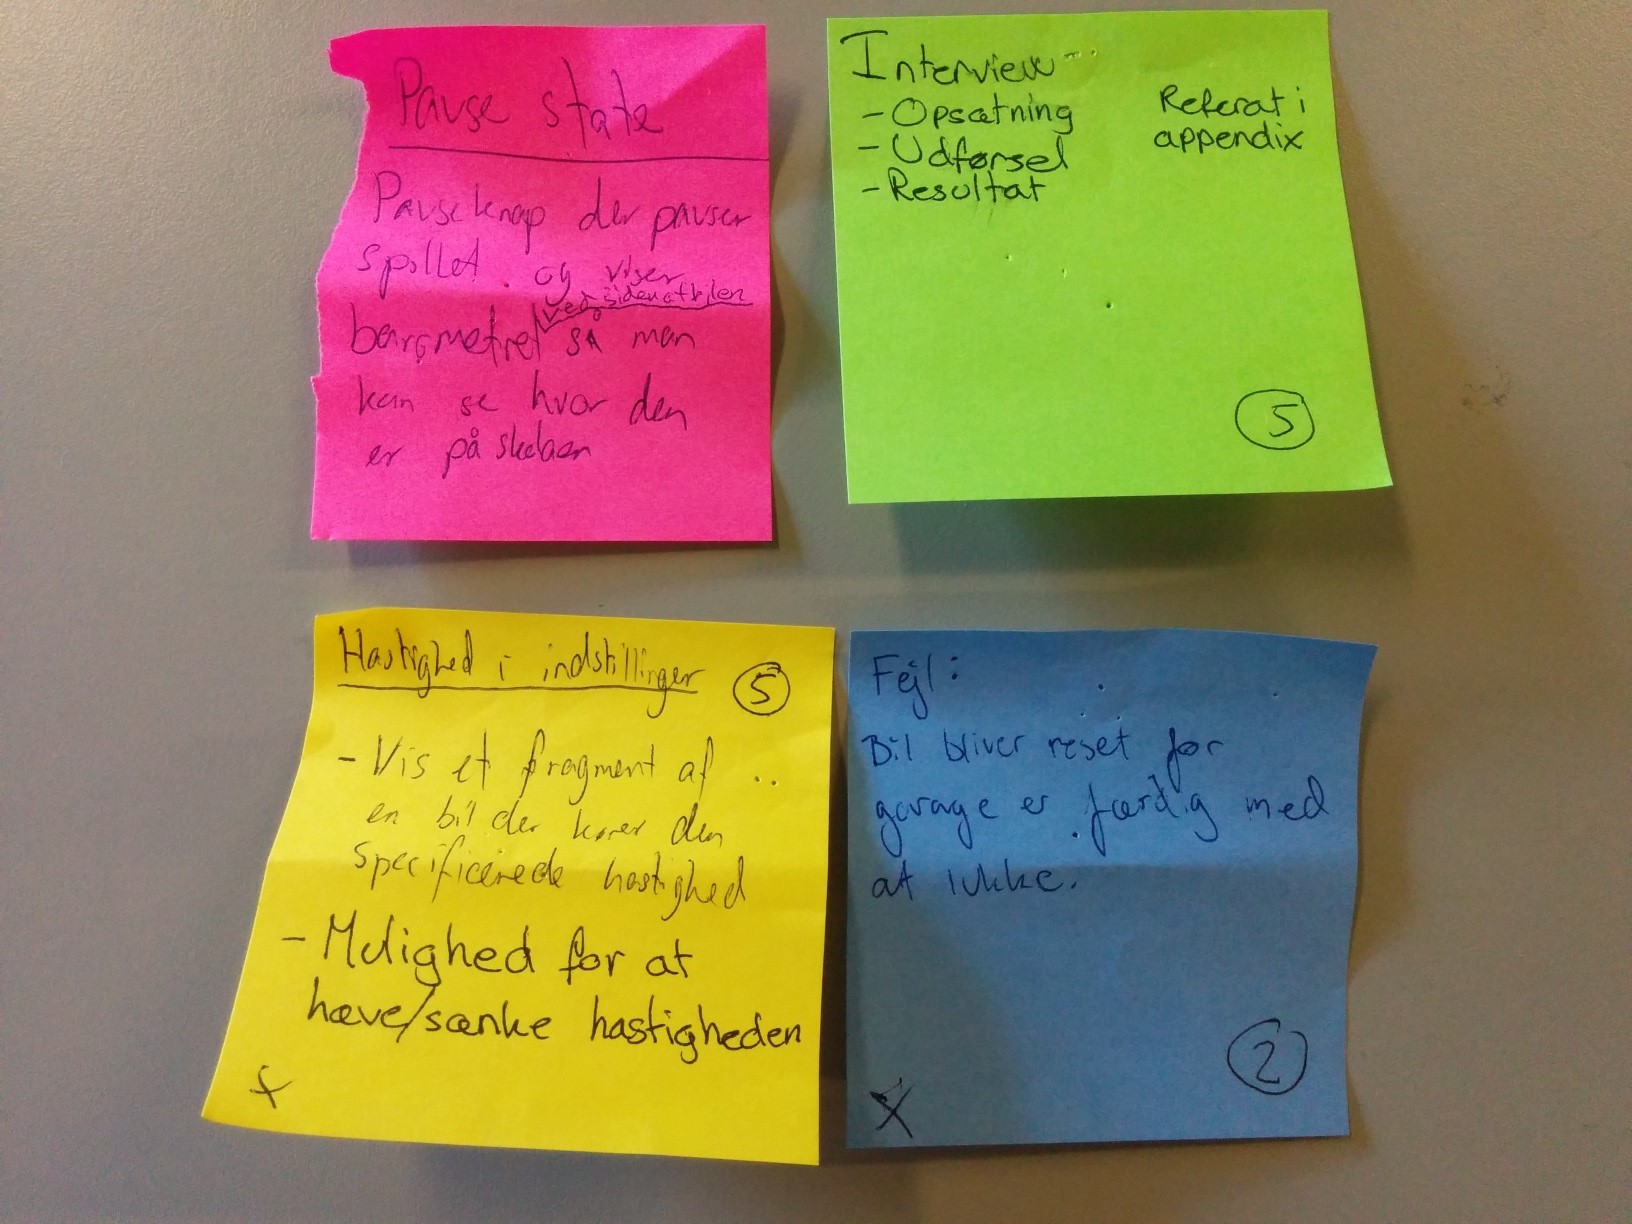 Pause state
Pauseknap der pauser
spillet og viser
ved siden af bilen
barometret så man
kan se hvor den
er på skalaen
Interview
- Opsætning
- Udførsel
- Resultat
Referat i
appendix
5
Hastighed i indstillinger
5
- Vis et fragment af
en bil der kører den
specificerede hastighed
- Mulighed for at
hæve/sænke hastigheden
x
Fejl:
Bil bliver reset før
garage er færdig med
at lukke.
2
X